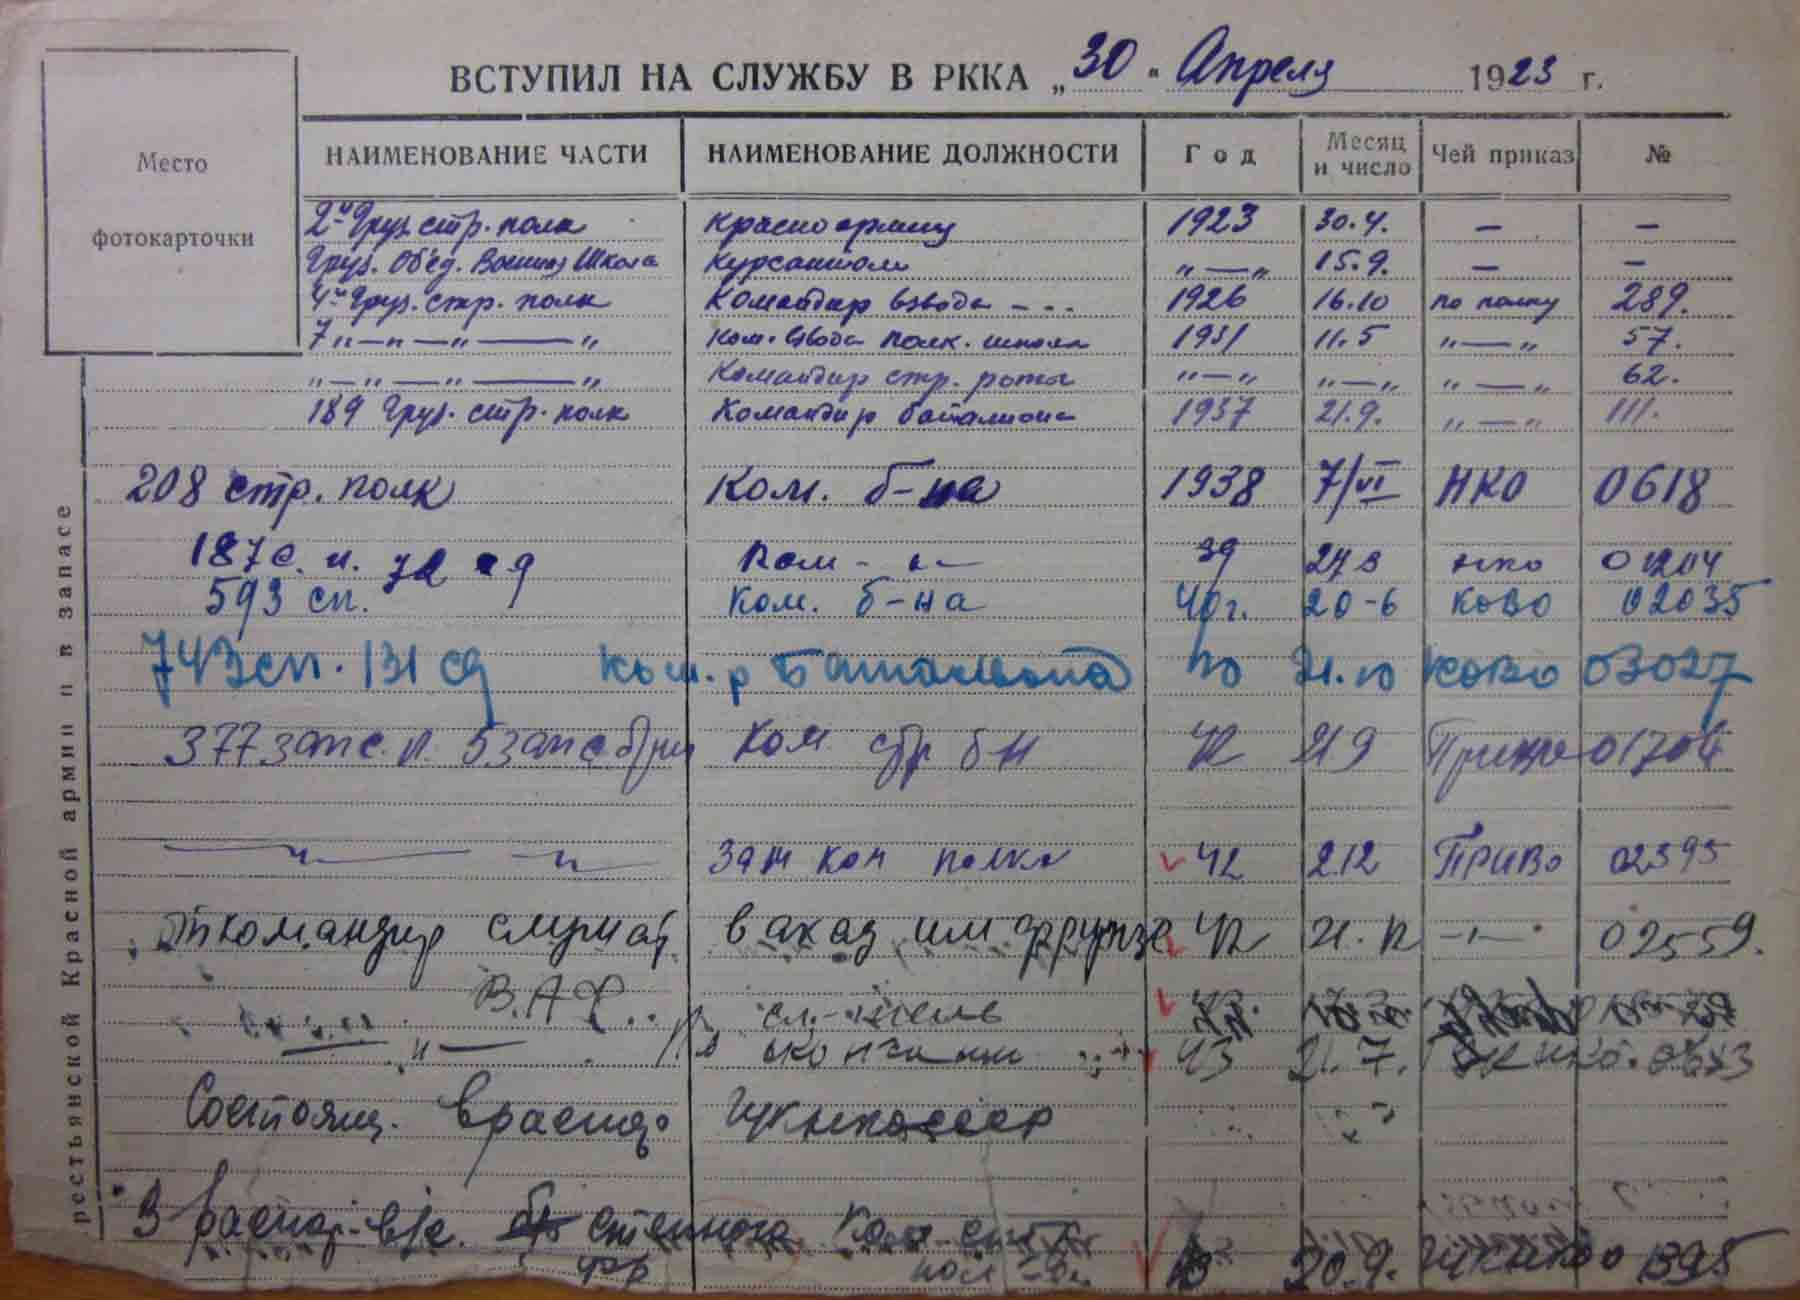 ВСТУПИЛ НА СЛУЖБУ В РККА „30" Апреля 1923 г.
Место
фотокарточки
НАИМЕНОВАНИЕ ЧАСТИ НАИМЕНОВАНИЕ ДОЛЖНОСТИ Год Месяц и число Чей приказ №
2й Груз. стр. полк Красноармеец 1923 30.4. — —
Груз. Объед. Военная Школа Курсантом „—„ 15.9. — —
4й Груз. стр. полк Командир взвода - - - 1926 16.10 по полку 289.
7 „—„—„——„ Ком. взвода полк. школы 1931 11.5 „—„ 57.
„—„—„——„ Командир стр. роты „—„ „—„ „—„ 62.
189 Груз. стр. полк Командир батальона 1937 21.9. „—„ 111.
208 стр. полк Ком. б-на 1938 7/VI НКО 0618
187 с. п. 72 сд Ком - „- 39 27 3 нко 01204
593 сп. Ком. б-на 40г. 20-6 КОВО 02035
743 сп. 131 сд Ком-р Батальона 40 21.10 КОВО 03027
377 зап с. п. 5 зап с бриг Ком стр б-н 42 21 9 Приво 01704
—„— —„— Зам ком полка 42 2 12 ПРИВО 02395
Откомандир слушат. в акад им Фрунзе 42 21. 12 —„— 02559.
В.А.Ф. сл-тель 43.
—„— По окончании 43 21.7. ГУК НКО.
Состоящ. в распор ГУК
В распор-ие Степного Ком.
фр 20.9. ГУК НКО 01395
рестьянской Красной армии и в запасе